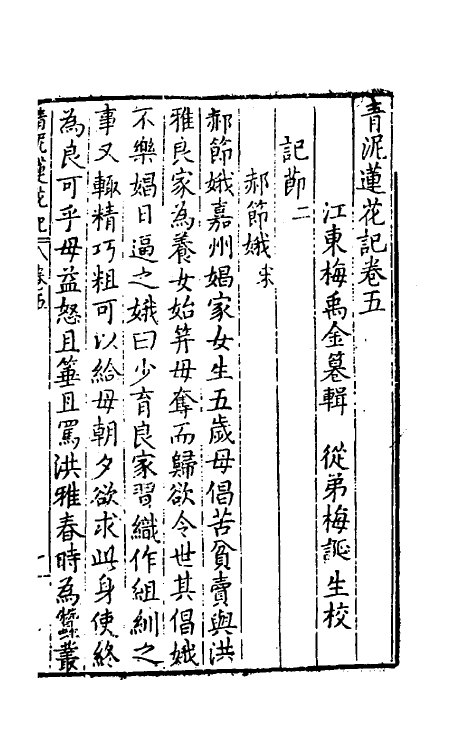 青泥蓮花記卷五
江東梅禹金纂輯　從弟梅誕生校
記節二
郝節娥宋
郝節娥嘉州娼家女生五歲母倡苦貧賣與洪
雅良家為養女始笄母奪而歸欲令世其倡娥
不樂娼日逼之娥曰少育良家習織作組紃之
事又輙精巧粗可以給母朝夕欲求此身使終
為良可乎母益怒且箠且罵洪雅春時為蠶叢
青泥蓮花記　卷五
一